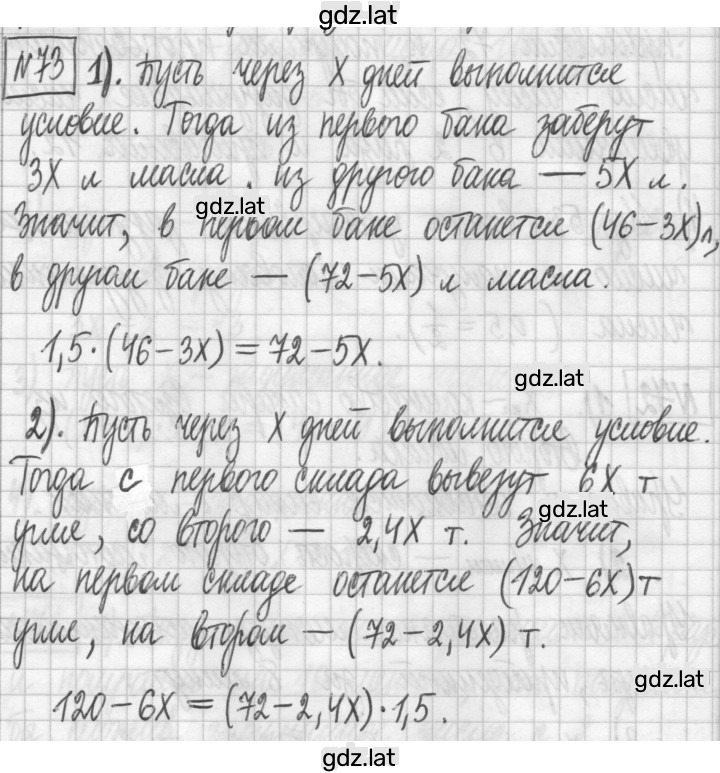 gdz.lat
№73 1). Пусть через X дней выполнится
условие. Тогда из первого бака заберут
3X л масла, из другого бака — 5X л.
gdz.lat
Значит, в первом баке останется (46-3X)л,
в другом баке — (72-5X) л масла.
1,5·(46-3X)=72-5X.
gdz.lat
2). Пусть через X дней выполнится условие.
Тогда с первого склада вывезут 6X т
gdz.lat
угля, со второго — 2,4X т. Значит,
на первом складе останется (120-6X)т
угля, на втором — (72-2,4X) т.
gdz.lat
120-6X=(72-2,4X)·1,5.
gdz.lat